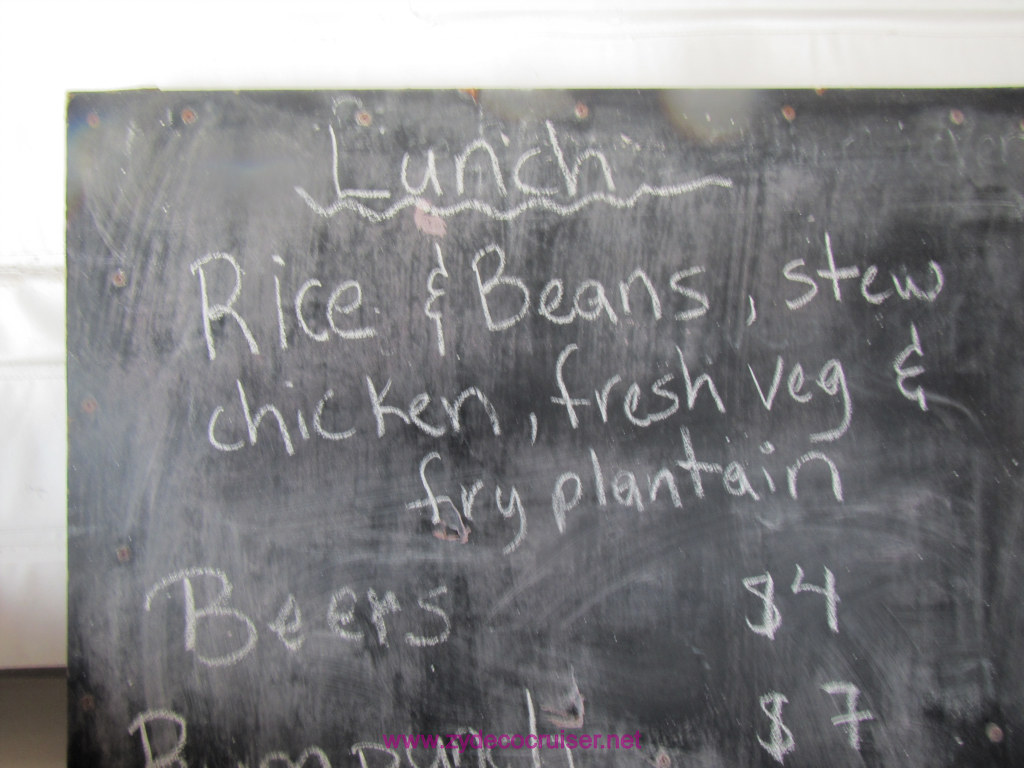 Lunch
Rice & Beans, stew
chicken, fresh veg &
fry plantain
Beers $4
Rum punch $7
www.zydecocruiser.net